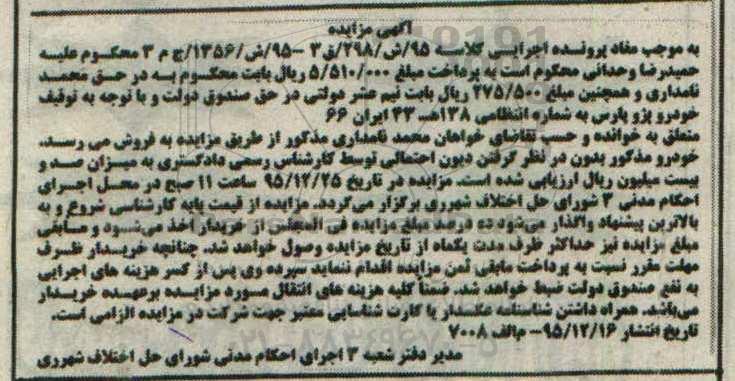 آگهی مزایده
به موجب مفاد پرونده اجرایی کلاسه ۹۵/ش/۲۹۸/ق۳ -۹۵/ش/۱۳۵۶/ج م ۳ محکوم علیه
حمیدرضا وحدانی محکوم است به پرداخت مبلغ ۵/۵۱۰/۰۰۰ ریال بابت محکوم به در حق محمد
نامداری و همچنین مبلغ ۲۷۵/۵۰۰ ریال بابت نیم عشر دولتی در حق صندوق دولت و با توجه به توقیف
خودرو پژو پارس به شماره انتظامی ۱۳۸هـ ۳۳ ایران ۶۶
متعلق به خوانده و حسب تقاضای خواهان محمد نامداری مذکور از طریق مزایده به فروش می رسد.
خودرو مذکور بدون در نظر گرفتن دیون احتمالی توسط کارشناس رسمی دادگستری به میزان صد و
بیست میلیون ریال ارزیابی شده است. مزایده در تاریخ ۹۵/۱۲/۲۵ ساعت ۱۱ صبح در محل اجرای
احکام مدنی ۳ شورای حل اختلاف شهرری برگزار می‌گردد. مزایده از قیمت پایه کارشناسی شروع و به
بالاترین پیشنهاد واگذار می‌شود ده درصد مبلغ مزایده فی المجلس از خریدار اخذ می‌شود و مابقی
مبلغ مزایده نیز حداکثر ظرف مدت یکماه از تاریخ مزایده وصول خواهد شد. چنانچه خریدار ظرف
مهلت مقرر نسبت به پرداخت مابقی ثمن مزایده اقدام ننماید سپرده وی پس از کسر هزینه های اجرایی
به نفع صندوق دولت ضبط خواهد شد. ضمناً کلیه هزینه های انتقال مورد مزایده برعهده خریدار
می‌باشد. همراه داشتن شناسنامه عکسدار یا کارت شناسایی معتبر جهت شرکت در مزایده الزامی است.
تاریخ انتشار ۹۵/۱۲/۱۶- م‌الف ۷۰۰۸
مدیر دفتر شعبه ۳ اجرای احکام مدنی شورای حل اختلاف شهرری